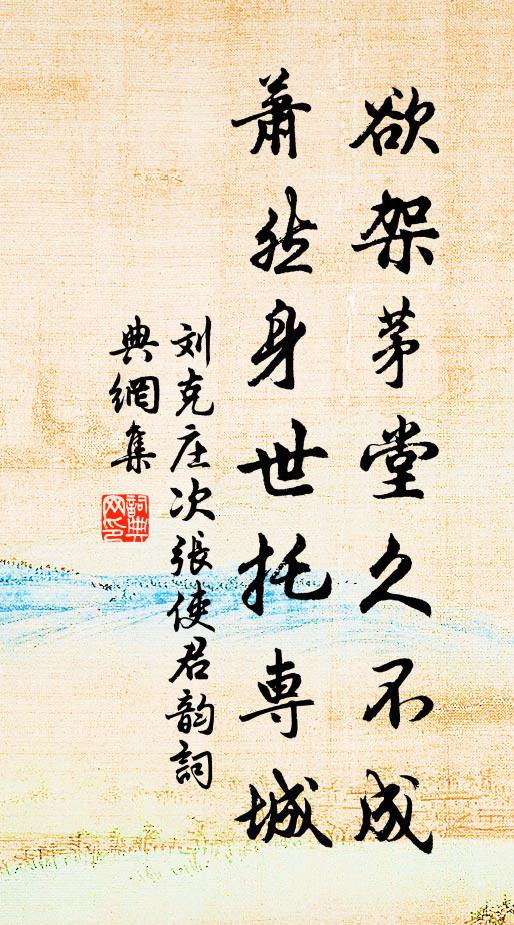 欲架茅堂久不成
蕭然身世托専城
刘克庄次張使君韵詞
典網集
詞典
网印